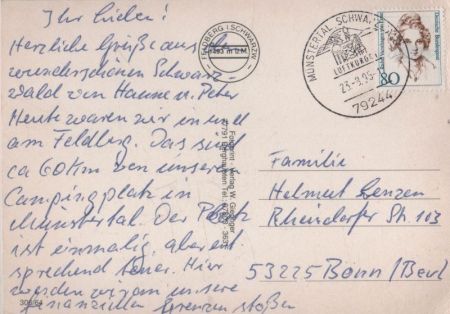 Ihr Lieben!
Herzliche Grüße aus
wunderschönen Schwarz-
wald von Hanne u. Peter
Heute waren wir in
am Feldberg. Das sind
ca 60 km von unseren
Campingplatz in
Münstertal. Der Platz
ist einmalig, aber ent
sprechend teuer. Hier
werden wir an unsere
finanziellen Grenzen stoßen
308/64
FELDBERG I. SCHWARZW.
1493 m ü.M.
MÜNSTERTAL, SCHWARZW
LUFTKURORT
23.-9.95
79244
Deutsche Bundespost
80
Familie
Helmut Lenzen
Rheindorfer Str. 103
53225 Bonn (Beuel